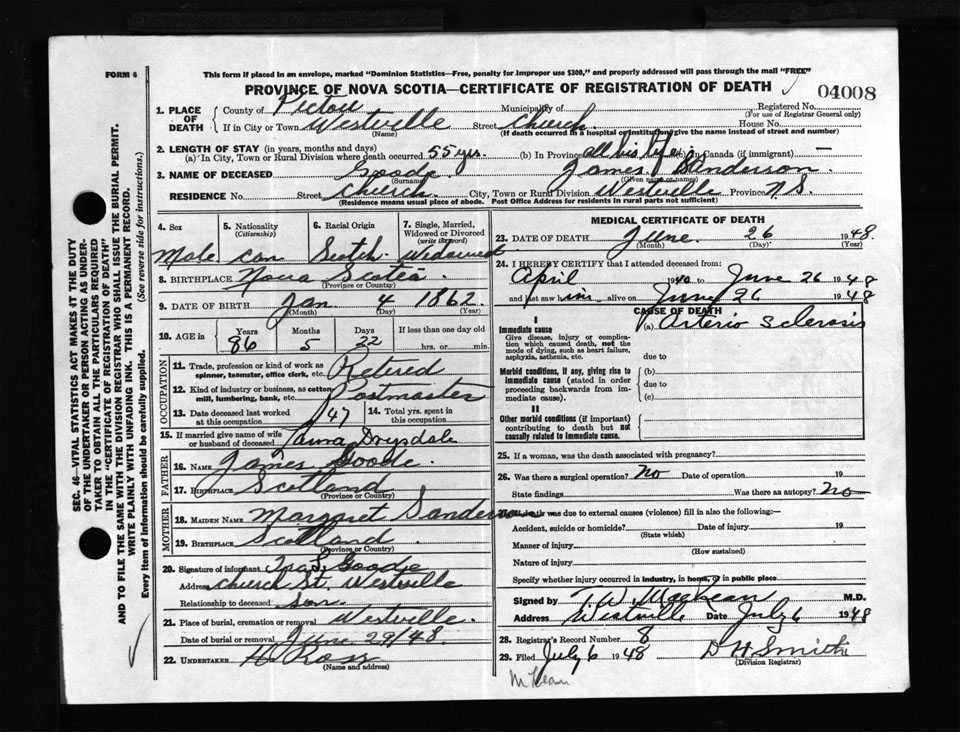 FORM 6
This form if placed in an envelope, marked "Dominion Statistics—Free, penalty for improper use $300," and properly addressed will pass through the mail "FREE"
PROVINCE OF NOVA SCOTIA—CERTIFICATE OF REGISTRATION OF DEATH
04008
1. PLACE OF DEATH
County of Pictou Municipality of Registered No.
(For use of Registrar General only)
If in City or Town Westville Street Church. House No.
(Name) (If death occurred in a hospital or institution give the name instead of street and number)
2. LENGTH OF STAY (in years, months and days)
(a) In City, Town or Rural Division where death occurred 55 yrs. (b) In Province all his life (c) In Canada (if immigrant) —
3. NAME OF DECEASED Goode James Sanderson.
(Surname) (Given name or names)
RESIDENCE No. Street Church. City, Town or Rural Division Westville Province N.S.
(Residence means usual place of abode. Post Office Address for residents in rural parts not sufficient)
4. Sex 5. Nationality (Citizenship) 6. Racial Origin 7. Single, Married, Widowed or Divorced (write the word)
Male Can Scotch Widowed
8. BIRTHPLACE Nova Scotia
(Province or Country)
9. DATE OF BIRTH Jan. 4 1862
(Month) (Day) (Year)
10. AGE in Years Months Days If less than one day old
86 5 22 hrs. or min.
OCCUPATION
11. Trade, profession or kind of work as spinner, teamster, office clerk, etc. Retired
12. Kind of industry or business, as cotton mill, lumbering, bank, etc. Postmaster
13. Date deceased last worked at this occupation /47 14. Total yrs. spent in this occupation
15. If married give name of wife or husband of deceased Drysdale
FATHER
16. NAME James Goode.
17. BIRTHPLACE Scotland
(Province or Country)
MOTHER
18. MAIDEN NAME Margaret Sanderson
19. BIRTHPLACE Scotland.
(Province or Country)
20. Signature of informant Ira S. Goode
Address Church St. Westville
Relationship to deceased Son.
21. Place of burial, cremation or removal Westville.
Date of burial or removal June 29/48
22. UNDERTAKER H. Ross
(Name and address)
MEDICAL CERTIFICATE OF DEATH
23. DATE OF DEATH June. 26 1948.
(Month) (Day) (Year)
24. I HEREBY CERTIFY that I attended deceased from:
April 1940 to June 26 1948
and last saw him alive on June 26 1948
CAUSE OF DEATH
I
Immediate cause (a) Arterio Sclerosis
Give disease, injury or complication which caused death, not the mode of dying, such as heart failure, asphyxia, asthenia, etc.
due to
Morbid conditions, if any, giving rise to immediate cause (stated in order proceeding backwards from immediate cause).
(b)
due to
(c)
II
Other morbid conditions (if important) contributing to death but not causally related to immediate cause.
25. If a woman, was the death associated with pregnancy?
26. Was there a surgical operation? No Date of operation 19
State findings Was there an autopsy? No
27. If death was due to external causes (violence) fill in also the following:—
Accident, suicide or homicide? Date of injury 19
(State which)
Manner of injury
(How sustained)
Nature of injury
Specify whether injury occurred in industry, in home, or in public place
Signed by M.D.
Address Westville Date July 6 1948
28. Registrar's Record Number 8
29. Filed July 6 1948 D H Smith
(Division Registrar)
SEC. 46—VITAL STATISTICS ACT MAKES IT THE DUTY
OF THE UNDERTAKER OR PERSON ACTING AS UNDERTAKER
TO OBTAIN ALL THE PARTICULARS REQUIRED
IN THE "CERTIFICATE OF REGISTRATION OF DEATH"
AND TO FILE THE SAME WITH THE DIVISION REGISTRAR WHO SHALL ISSUE THE BURIAL PERMIT.
WRITE PLAINLY WITH UNFADING INK. THIS IS A PERMANENT RECORD.
Every item of information should be carefully supplied. (See reverse side for instructions.)